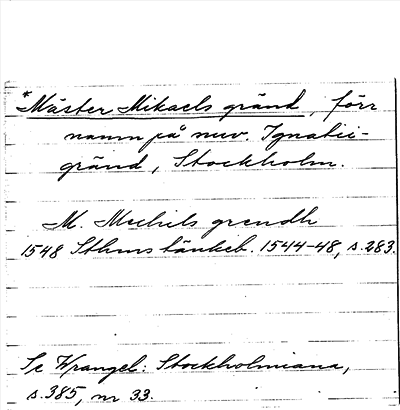 *Mäster Mikaels gränd, förr
namn på nuv. Ignatii-
gränd, Stockholm.
M. Mechils grendh
1548 Sthms tänkeb. 1544-48, s.283.
Se Wrangel: Stockholmiana,
s.385, nr 33.